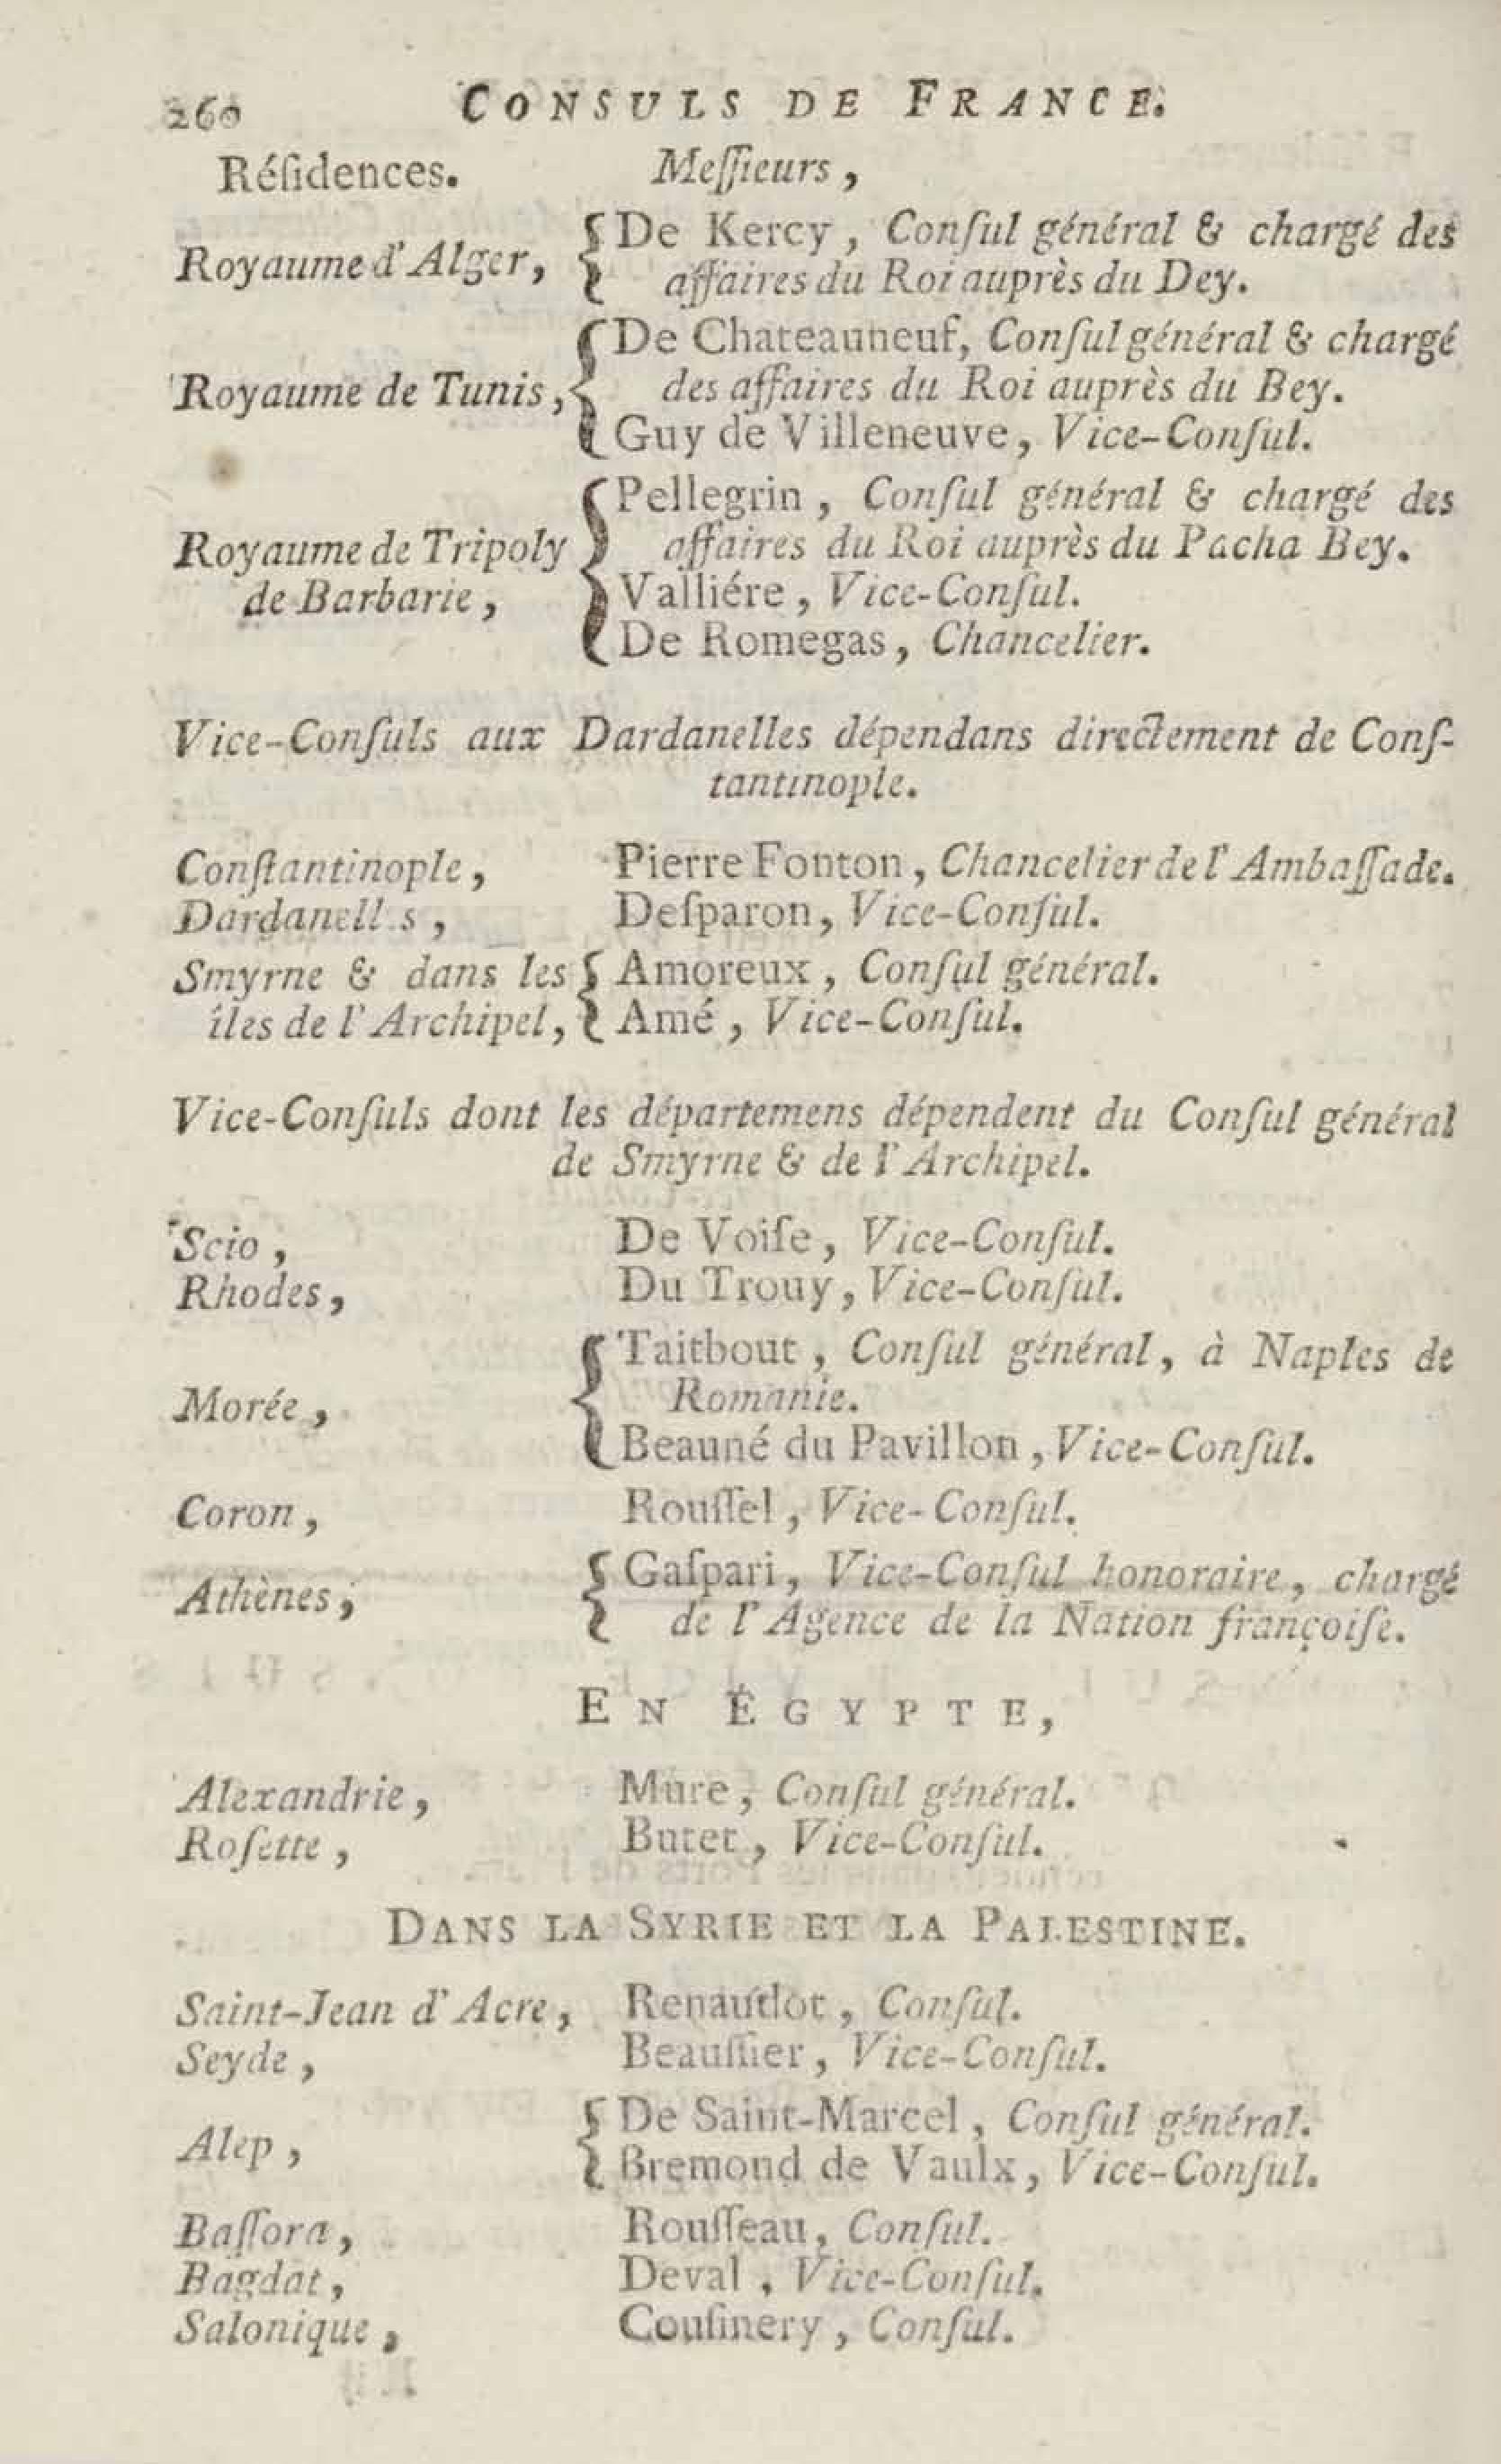 260 CONSULS DE FRANCE.
Réſidences. Meſſieurs,
Royaume d'Alger, De Kercy, Conſul général & chargé des
affaires du Roi auprès du Dey.
De Chateauneuf, Conſul général & chargé
Royaume de Tunis, des affaires du Roi auprès du Bey.
Guy de Villeneuve, Vice-Conſul.
Pellegrin, Conſul général & chargé des
Royaume de Tripoly affaires du Roi auprès du Pacha Bey.
de Barbarie, Valliére, Vice-Conſul.
De Romegas, Chancelier.
Vice-Conſuls aux Dardanelles dépendans directement de Conſ-
tantinople.
Conſtantinople, Pierre Fonton, Chancelier de l'Ambaſſade.
Dardanell.s, Deſparon, Vice-Conſul.
Smyrne & dans les Amoreux, Conſul général.
îles de l'Archipel, Amé, Vice-Conſul.
Vice-Conſuls dont les départemens dépendent du Conſul général
de Smyrne & de l'Archipel.
Scio, De Voiſe, Vice-Conſul.
Rhodes, Du Trouy, Vice-Conſul.
Taitbout, Conſul général, à Naples de
Morée, Romanie.
Beauné du Pavillon, Vice-Conſul.
Coron, Rouſſel, Vice-Conſul.
Athènes, Gaſpari, Vice-Conſul honoraire, chargé
de l'Agence de la Nation françoiſe.
EN ÉGYPTE,
Alexandrie, Mure, Conſul général.
Roſette, Butet, Vice-Conſul.
DANS LA SYRIE ET LA PALESTINE.
Saint-Jean d'Acre, Renaudot, Conſul.
Seyde, Beauſſier, Vice-Conſul.
Alep, De Saint-Marcel, Conſul général.
Bremond de Vaulx, Vice-Conſul.
Baſſora, Rouſſeau, Conſul.
Bagdat, Deval, Vice-Conſul.
Salonique, Couſinery, Conſul.